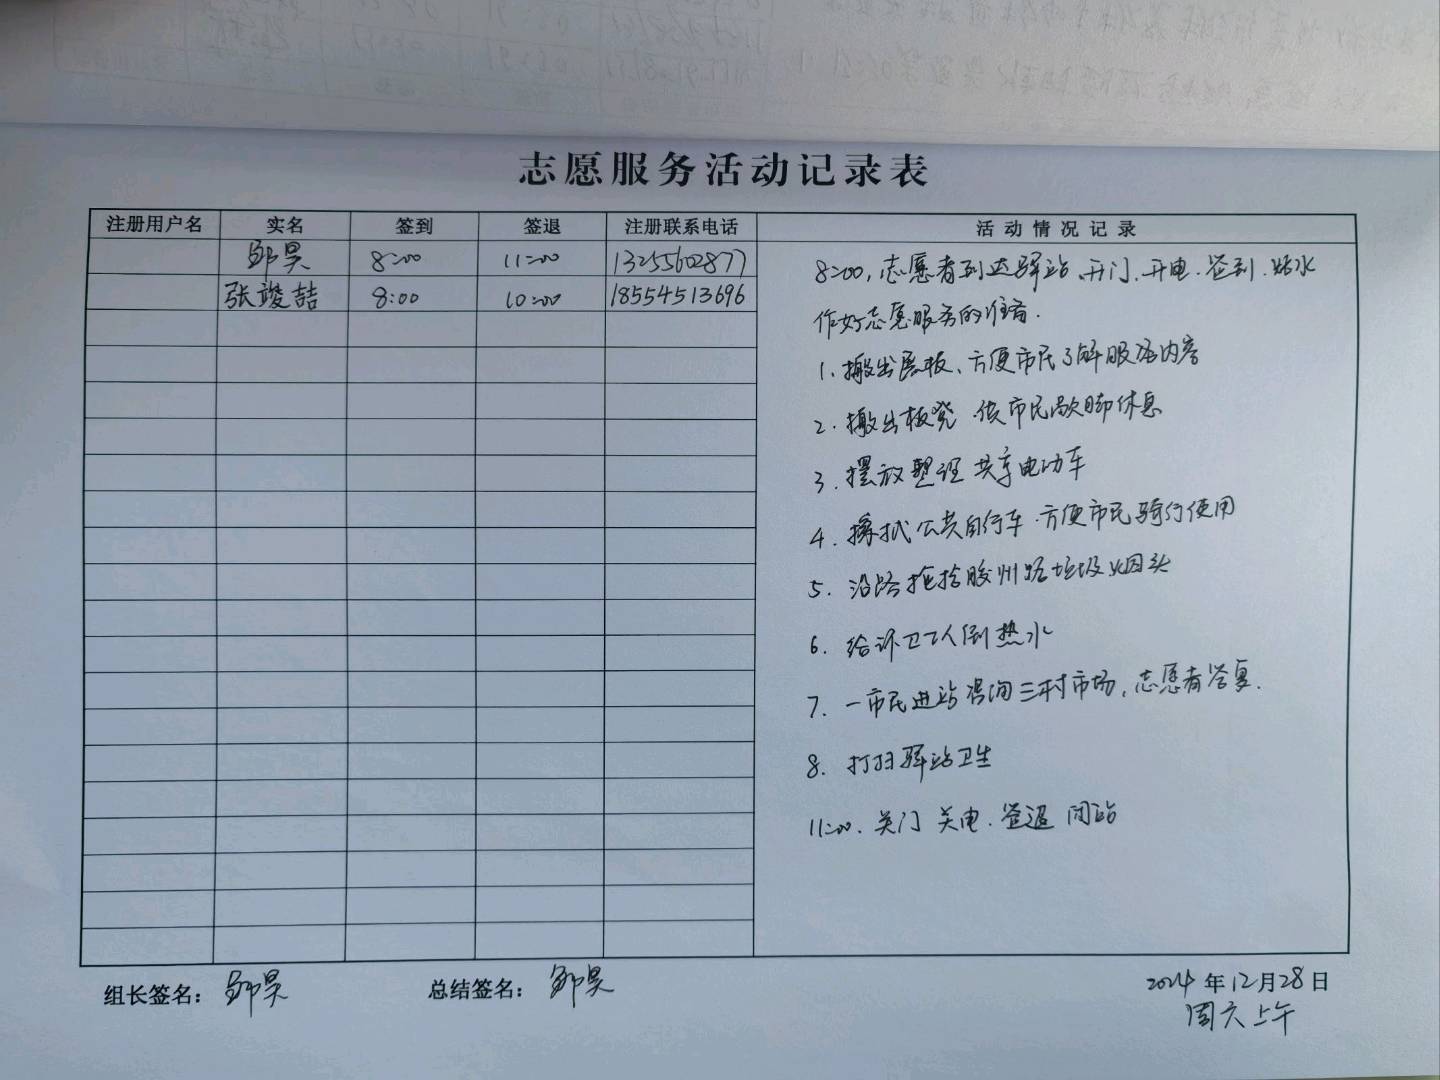 志愿服务活动记录表
注册用户名 实名 签到 签退 注册联系电话 活动情况记录
邹昊 8:00 11:00 13255602877
张竣喆 8:00 10:00 18554513696
8:00,志愿者到达驿站.开门.开电.签到.烧水
作好志愿服务的准备.
1.搬出展板、方便市民了解服务内容
2.搬出板凳.供市民歇脚休息
3.摆放整理共享电动车
4.擦拭公共自行车.方便市民骑行使用
5.沿路捡拾胶州路垃圾烟头
6.给环卫工人倒热水
7.一市民进站咨询三村市场,志愿者答复.
8.打扫驿站卫生
11:00.关门 关电.签退 闭站
组长签名:邹昊 总结签名:邹昊 2024年12月28日
周六上午